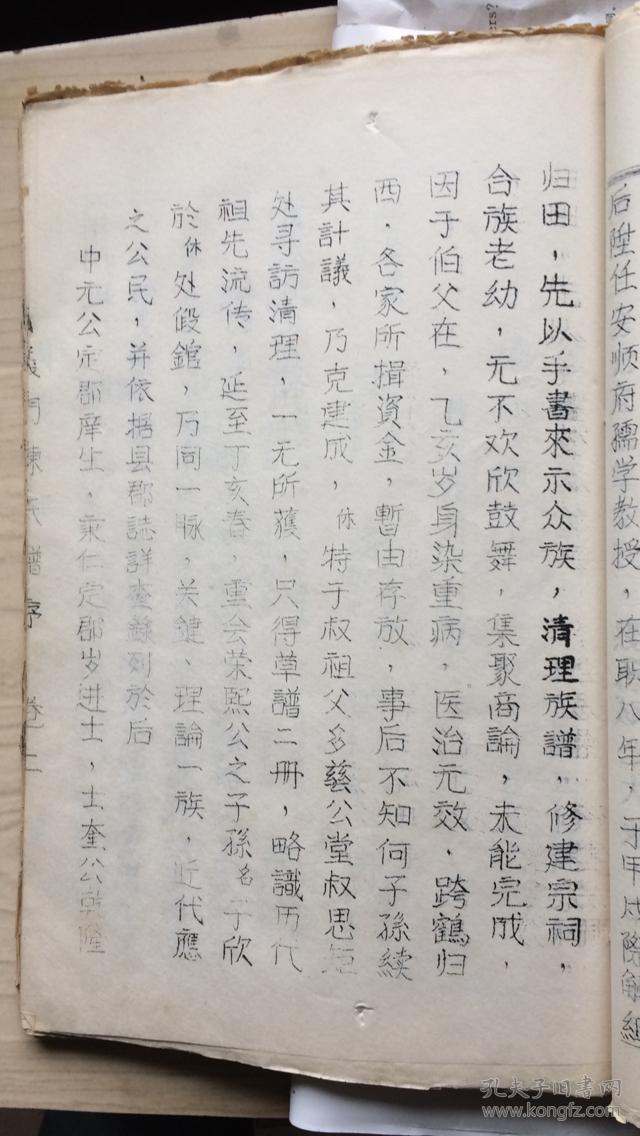 后陞任安顺府孺学教授，在职八年，于甲戌际解組
归田，先以手書來示众族，清理族譜，修建宗祠，
合族老幼，无不欢欣鼓舞，集聚商論，未能完成，
因于伯父在，乙亥岁身染重病，医治无效．跨鶴归
西．各家所揖資金，暫由存放，事后不知何子孫續
其計議，乃克建成，休特于叔祖父多慈公堂叔思矩
处寻訪清理，一无所獲，只得草譜二冊，略識历代
祖先流传，延至丁亥春，重会荣熙公之子孫名子欣
於休处假舘，乃同一脉，关鍵、理論一族，近代應
之公民，并依据县郡誌詳查錄列於后
中元公定郡庠生，秉仁定郡岁进士，士奎公乾隆
義門陳氏譜序 卷一
孔夫子旧書网
www.kongfz.com